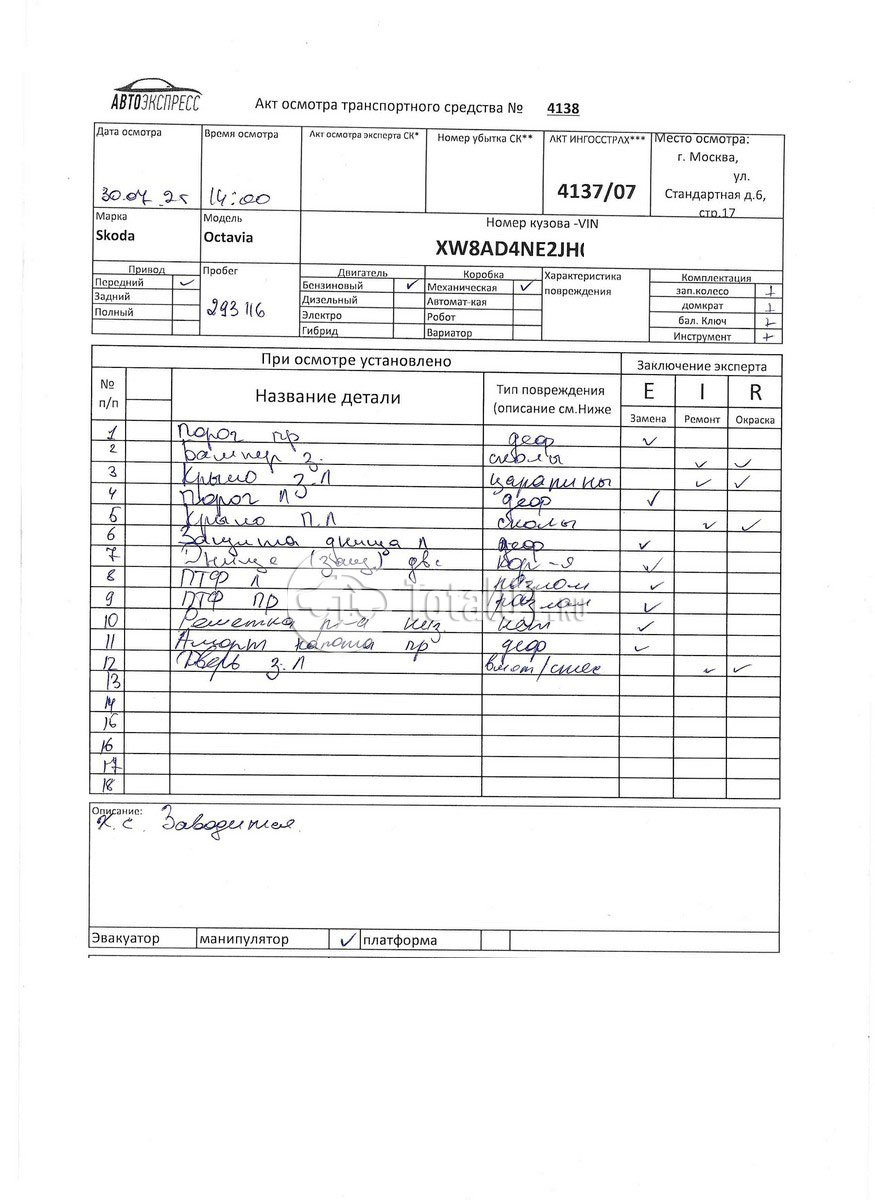 АВТОЭКСПРЕСС
Акт осмотра транспортного средства № 4138
Дата осмотра Время осмотра Акт осмотра эксперта СК* Номер убытка СК** АКТ ИНГОССТРАХ*** Место осмотра:
г. Москва,
ул.
30.07.25 14:00 4137/07 Стандартная д.6,
стр.17
Марка Модель Номер кузова -VIN
Skoda Octavia
XW8AD4NE2JH
Привод Пробег Двигатель Коробка Характеристика Комплектация
Передний ✓ Бензиновый ✓ Механическая ✓ повреждения зап.колесо +
Задний 293116 Дизельный Автомат-кая домкрат +
Полный Электро Робот бал. Ключ +
Гибрид Вариатор Инструмент +
При осмотре установлено Заключение эксперта
№ п/п Название детали Тип повреждения (описание см.Ниже E I R
Замена Ремонт Окраска
1 Порог пр деф ✓
2 Бампер з. сколы ✓ ✓
3 Крыло з.Л царапины ✓ ✓
4 Порог Л деф ✓
5 Крыло П.Л сколы ✓ ✓
6 Защита днища Л деф ✓
7 Днище (защ) двс кор-я ✓
8 ПТФ Л разлом ✓
9 ПТФ ПР разлом ✓
10 Решетка р-а низ ✓
11 Аморт капота пр деф ✓
12 Дверь з.Л вмят/ ✓ ✓
13
14
16
16
17
18
Описание:
К.С. Заводится
Эвакуатор манипулятор ✓ платформа
TotalKit.RU